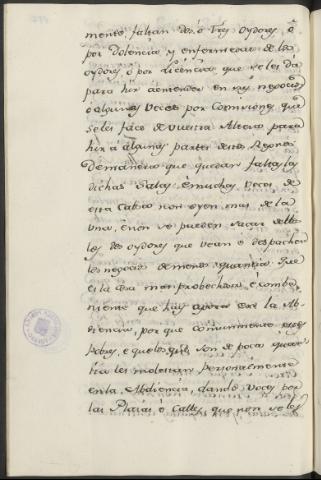 mente faltan dos, ó tres oydores, ó
por dolencia, y enfermedad de los
oydores, ó por licencia que se les da
para hir á entender en sus negocios
ó algunas veces por Comisiones que
se les face de vuestra Alteza para
hir á algunas partes destos Reynos
De manera que quedan faltas las
dichas Salas, é muchas veces de
esta Cabsa non oyen mas de la
una, é non se pueden sacar dellas
los dos oydores que vean é despachen
los negocios de menos quantia que
es la cosa mas probechosa, é combe-
niente que hay agora en la Ab-
diencia, por que comunmente
pobres, e que los son de poca quan-
tia les molestan personalmente
en la Abdiencia, dando voces por
las Plazas, é Calles, que non se les